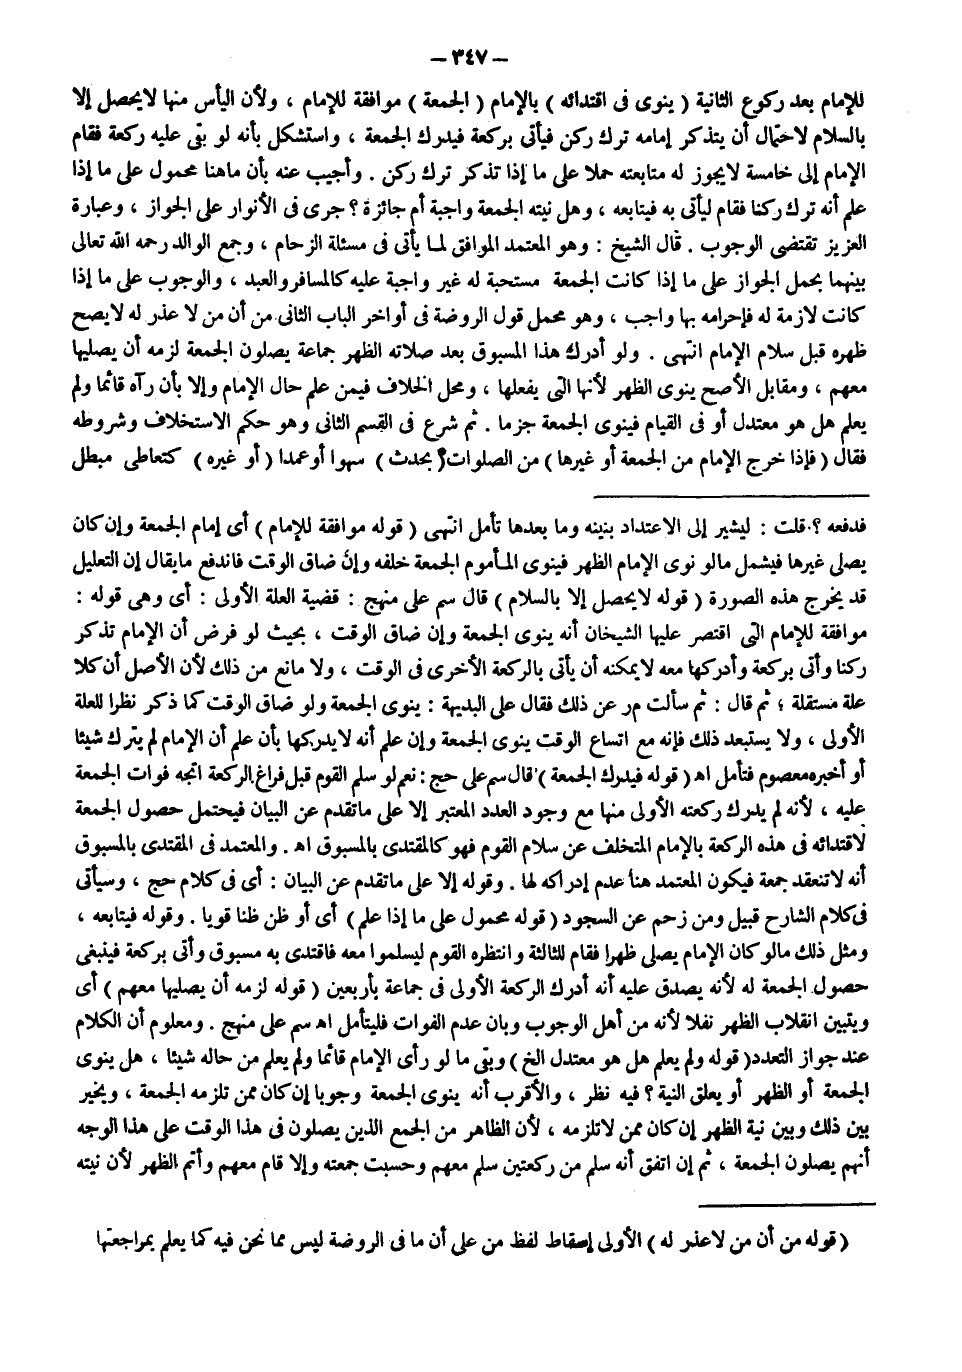 – ٣٤٧ –
للإمام بعد ركوع الثانية ( ينوى فى اقتدائه ) بالإمام ( الجمعة ) موافقة للإمام ، ولأن اليأس منها لايحصل إلا
بالسلام لاحتمال أن يتذكر إمامه ترك ركن فيأتى بركعة فيدرك الجمعة ، واستشكل بأنه لو بقى عليه ركعة فقام
الإمام إلى خامسة لايجوز له متابعته حملا على ما إذا تذكر ترك ركن . وأجيب عنه بأن ماهنا محمول على ما إذا
علم أنه ترك ركنا فقام ليأتى به فيتابعه ، وهل نيته الجمعة واجبة أم جائزة ؟ جرى فى الأنوار على الجواز ، وعبارة
العزيز تقتضى الوجوب . قال الشيخ : وهو المعتمد الموافق لما يأتى فى مسئلة الزحام ، وجمع الوالد رحمه الله تعالى
بينهما بحمل الجواز على ما إذا كانت الجمعة مستحبة له غير واجبة عليه كالمسافر والعبد ، والوجوب على ما إذا
كانت لازمة له فإحرامه بها واجب ، وهو محمل قول الروضة فى أواخر الباب الثانى من أن من لا عذر له لايصح
ظهره قبل سلام الإمام انتهى . ولو أدرك هذا المسبوق بعد صلاته الظهر جماعة يصلون الجمعة لزمه أن يصليها
معهم ، ومقابل الأصح ينوى الظهر لأنها التى يفعلها ، ومحل الخلاف فيمن علم حال الإمام وإلا بأن رآه قائما ولم
يعلم هل هو معتدل أو فى القيام فينوى الجمعة جزما . ثم شرع فى القسم الثانى وهو حكم الاستخلاف وشروطه
فقال ( فإذا خرج الإمام من الجمعة أو غيرها ) من الصلوات ( بحدث ) سهوا أو عمدا ( أو غيره ) كتعاطى مبطل
فدفعه ؟ قلت : ليشير إلى الاعتداد بنيته وما بعدها تأمل انتهى ( قوله موافقة للإمام ) أى إمام الجمعة وإن كان
يصلى غيرها فيشمل مالو نوى الإمام الظهر فينوى المأموم الجمعة خلفه وإن ضاق الوقت فاندفع مايقال إن التعليل
قد يخرج هذه الصورة ( قوله لايحصل إلا بالسلام ) قال سم على منهج : قضية العلة الأولى : أى وهى قوله :
موافقة للإمام التى اقتصر عليها الشيخان أنه ينوى الجمعة وإن ضاق الوقت ، بحيث لو فرض أن الإمام تذكر
ركنا وأتى بركعة وأدركها معه لايمكنه أن يأتى بالركعة الأخرى فى الوقت ، ولا مانع من ذلك لأن الأصل أن كلا
علة مستقلة ؛ ثم قال : ثم سألت مر عن ذلك فقال على البديهة : ينوى الجمعة ولو ضاق الوقت كما ذكر نظرا للعلة
الأولى ، ولا يستبعد ذلك فإنه مع اتساع الوقت ينوى الجمعة وإن علم أنه لايدركها بأن علم أن الإمام لم يترك شيئا
أو أخبره معصوم فتأمل اه ( قوله فيدرك الجمعة ) قال سم على حج : نعم لو سلم القوم قبل فراغ الركعة اتجه فوات الجمعة
عليه ، لأنه لم يدرك ركعته الأولى منها مع وجود العدد المعتبر إلا على ماتقدم عن البيان فيحتمل حصول الجمعة
لاقتدائه فى هذه الركعة بالإمام المتخلف عن سلام القوم فهو كالمقتدى بالمسبوق اه . والمعتمد فى المقتدى بالمسبوق
أنه لاتنعقد جمعة فيكون المعتمد هنا عدم إدراكه لها . وقوله إلا على ماتقدم عن البيان : أى فى كلام حج ، وسيأتى
فى كلام الشارح قبيل ومن زحم عن السجود ( قوله محمول على ما إذا علم ) أى أو ظن ظنا قويا . وقوله فيتابعه ،
ومثل ذلك مالو كان الإمام يصلى ظهرا فقام للثالثة وانتظره القوم ليسلموا معه فاقتدى به مسبوق وأتى بركعة فينبغى
حصول الجمعة له لأنه يصدق عليه أنه أدرك الركعة الأولى فى جماعة بأربعين ( قوله لزمه أن يصليها معهم ) أى
ويتبين انقلاب الظهر نفلا لأنه من أهل الوجوب وبان عدم الفوات فليتأمل اه سم على منهج . ومعلوم أن الكلام
عند جواز التعدد ( قوله ولم يعلم هل هو معتدل الخ ) وبقى ما لو رأى الإمام قائما ولم يعلم من حاله شيئا ، هل ينوى
الجمعة أو الظهر أو يعلق النية ؟ فيه نظر ، والأقرب أنه ينوى الجمعة وجوبا إن كان ممن تلزمه الجمعة ، ويخير
بين ذلك وبين نية الظهر إن كان ممن لاتلزمه ، لأن الظاهر من الجمع الذين يصلون فى هذا الوقت على هذا الوجه
أنهم يصلون الجمعة ، ثم إن اتفق أنه سلم من ركعتين سلم معهم وحسبت جمعته وإلا قام معهم وأتم الظهر لأن نيته
( قوله من أن من لاعذر له ) الأولى إسقاط لفظ من على أن ما فى الروضة ليس مما نحن فيه كما يعلم بمراجعتها